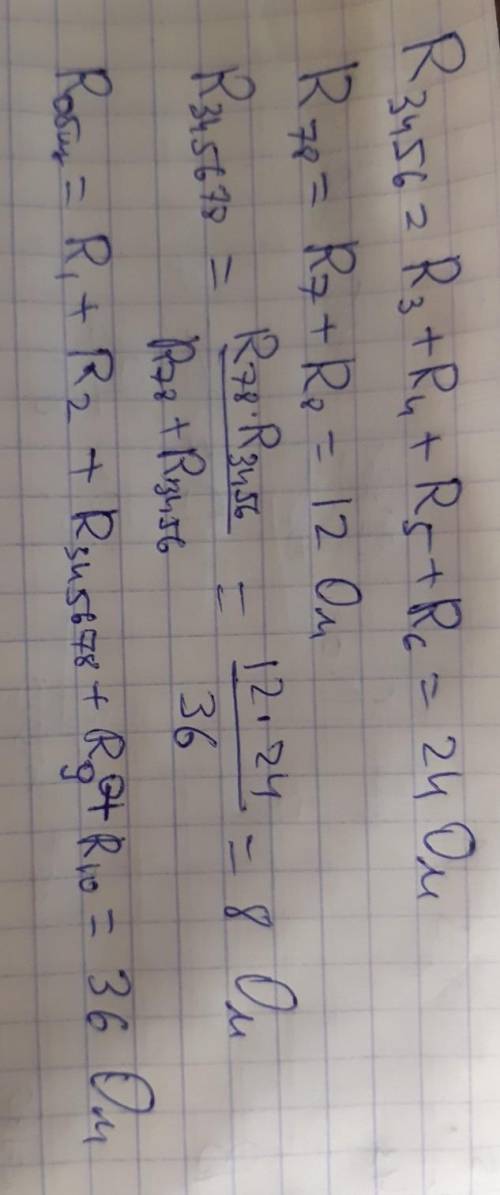 R3456 = R3 + R4 + R5 + R6 = 24 Ом
R78 = R7 + R8 = 12 Ом
R345678 = R78·R3456 / R78 + R3456 = 12·24 / 36 = 8 Ом
Rобщ = R1 + R2 + R345678 + R9 + R10 = 36 Ом